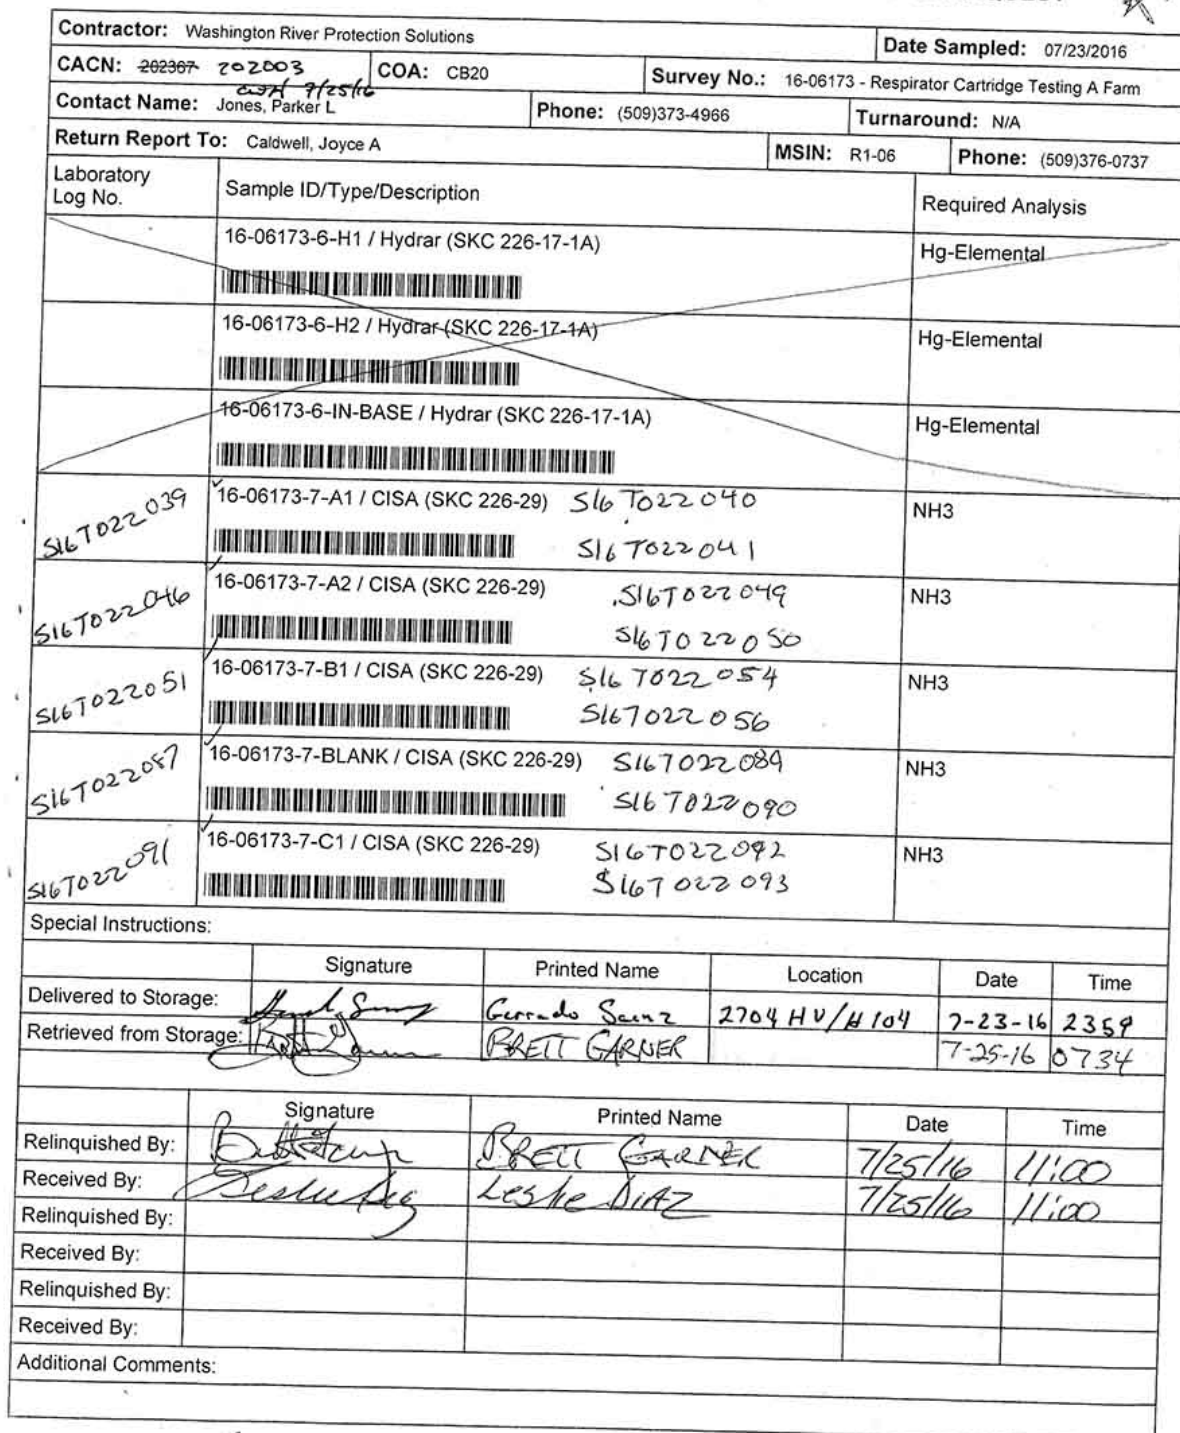 Contractor: Washington River Protection Solutions Date Sampled: 07/23/2016
CACN: 202367 202003 COA: CB20 Survey No.: 16-06173 - Respirator Cartridge Testing A Farm
7/25/16
Contact Name: Jones, Parker L Phone: (509)373-4966 Turnaround: N/A
Return Report To: Caldwell, Joyce A MSIN: R1-06 Phone: (509)376-0737
Laboratory Log No. Sample ID/Type/Description Required Analysis
16-06173-6-H1 / Hydrar (SKC 226-17-1A) Hg-Elemental
16-06173-6-H2 / Hydrar (SKC 226-17-1A) Hg-Elemental
16-06173-6-IN-BASE / Hydrar (SKC 226-17-1A) Hg-Elemental
S16T022039 16-06173-7-A1 / CISA (SKC 226-29) S16T022040 NH3
S16T022041
S16T022046 16-06173-7-A2 / CISA (SKC 226-29) S16T022049 NH3
S16T022050
S16T022051 16-06173-7-B1 / CISA (SKC 226-29) S16T022054 NH3
S16T022056
S16T022087 16-06173-7-BLANK / CISA (SKC 226-29) S16T022089 NH3
S16T022090
S16T022091 16-06173-7-C1 / CISA (SKC 226-29) S16T022092 NH3
S16T022093
Special Instructions:
Signature Printed Name Location Date Time
Delivered to Storage: Gerrado Saenz 2704 HV/H104 7-23-16 2359
Retrieved from Storage: BRETT GARNER 7-25-16 0734
Signature Printed Name Date Time
Relinquished By: BRETT GARNER 7/25/16 11:00
Received By: Leslie DIAZ 7/25/16 11:00
Relinquished By:
Received By:
Relinquished By:
Received By:
Additional Comments: